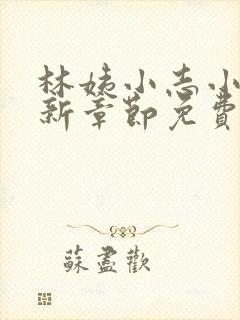 林姨小志小
新章節免費
蘇盡歡